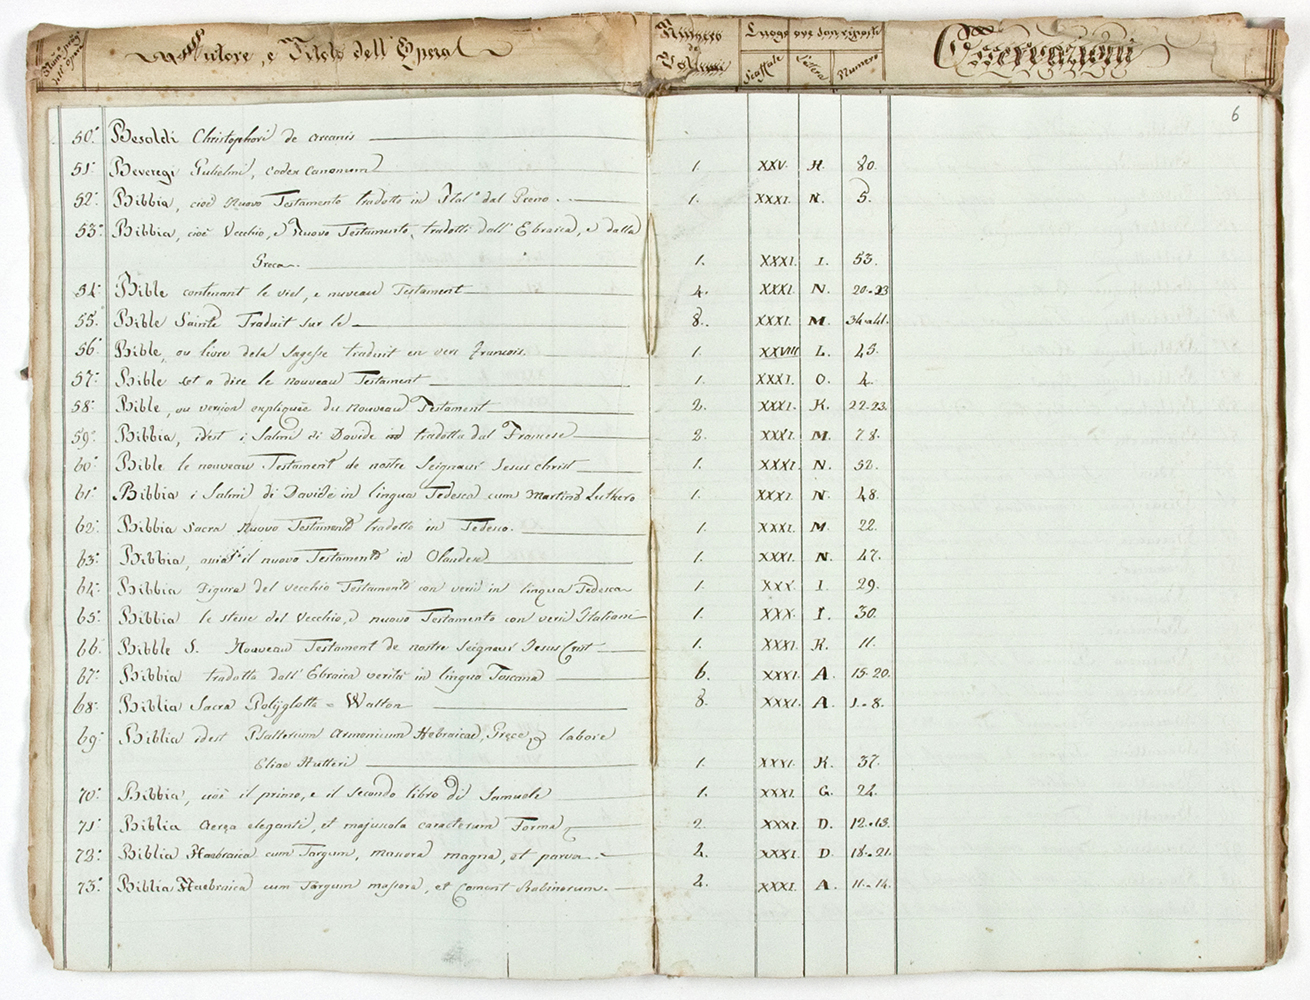 Autore, e Titolo dell'Opera
Numero de Volumi
Luogo ove son riposti
Scaffale Lettera Numero
Osservazioni
6
50° Besoldi Christophori de arcanis
51° Beveregi Gulielmi, codex canonum 1. XXV. H. 80.
52° Bibbia, cioè Nuovo Testamento tradotto in Ital° dal 1. XXXI. N. 5.
53° Bibbia, cioè Vecchio, e Nuovo Testamento, tradotti dall'Ebraica, e dalla
Greca. 1. XXXI. I. 53.
54° Bible contenant le viel, e nuveau Testament 4. XXXI. N. 20.-23
55° Bible Sainte Traduit sur le 8. XXXI. M. 34-41.
56° Bible, ou livre dela Sagesse traduit en vers francois. 1. XXVIII L. 45.
57° Bible set a dire le nouveau Testament 1. XXXI. O. 4.
58° Bible, ou version expliquée du nouveau Testament 2. XXXI. K. 22-23.
59° Bibbia, idest i Salmi di Davide in tradotta dal Francese 2. XXXI. M. 78.
60° Bible le nouveau Testament de nostre Seigneur Jesus christ 1. XXXI. N. 52.
61° Bibbia i Salmi di Davide in lingua Tedesca cum Martino Luthero 1. XXXI. N. 48.
62° Bibbia Sacra Nuovo Testamento tradotto in Tedesco. 1. XXXI. M. 22.
63° Bibbia, il nuovo Testamento in Olandese 1. XXXI. N. 47.
64° Bibbia Figure del vecchio Testamento con versi in lingua Tedesca 1. XXX. I. 29.
65° Bibbia le stesse del Vecchio, e nuovo Testamento con versi Italiani 1. XXX. I. 30.
66° Bibble S. Nouveau Testament de nostre Seigneur Jesus Crist 1. XXXI. K. 11.
67° Bibbia tradotta dall'Ebraica verità in lingua Toscana 6. XXXI. A. 15-20.
68° Biblia Sacra Polyglotta Walton 8. XXXI. A. 1.-8.
69° Biblia idest Psalterium Armonicum Hebraicae, Grece labore
Eliae Hutteri 1. XXXI. K. 37.
70° Bibbia, cioè il primo, e il secondo libro di Samuele 1. XXXI. G. 24.
71° Biblia elegante, et majuscola caracterum Forma 2. XXXI. D. 12.-13.
72° Biblia Haebraica cum Targum, massora magna, et parva 4. XXXI. D. 18.-21.
73° Biblia Haebraica cum Targum massora, et Coment Rabinorum. 4. XXXI. A. 11.-14.